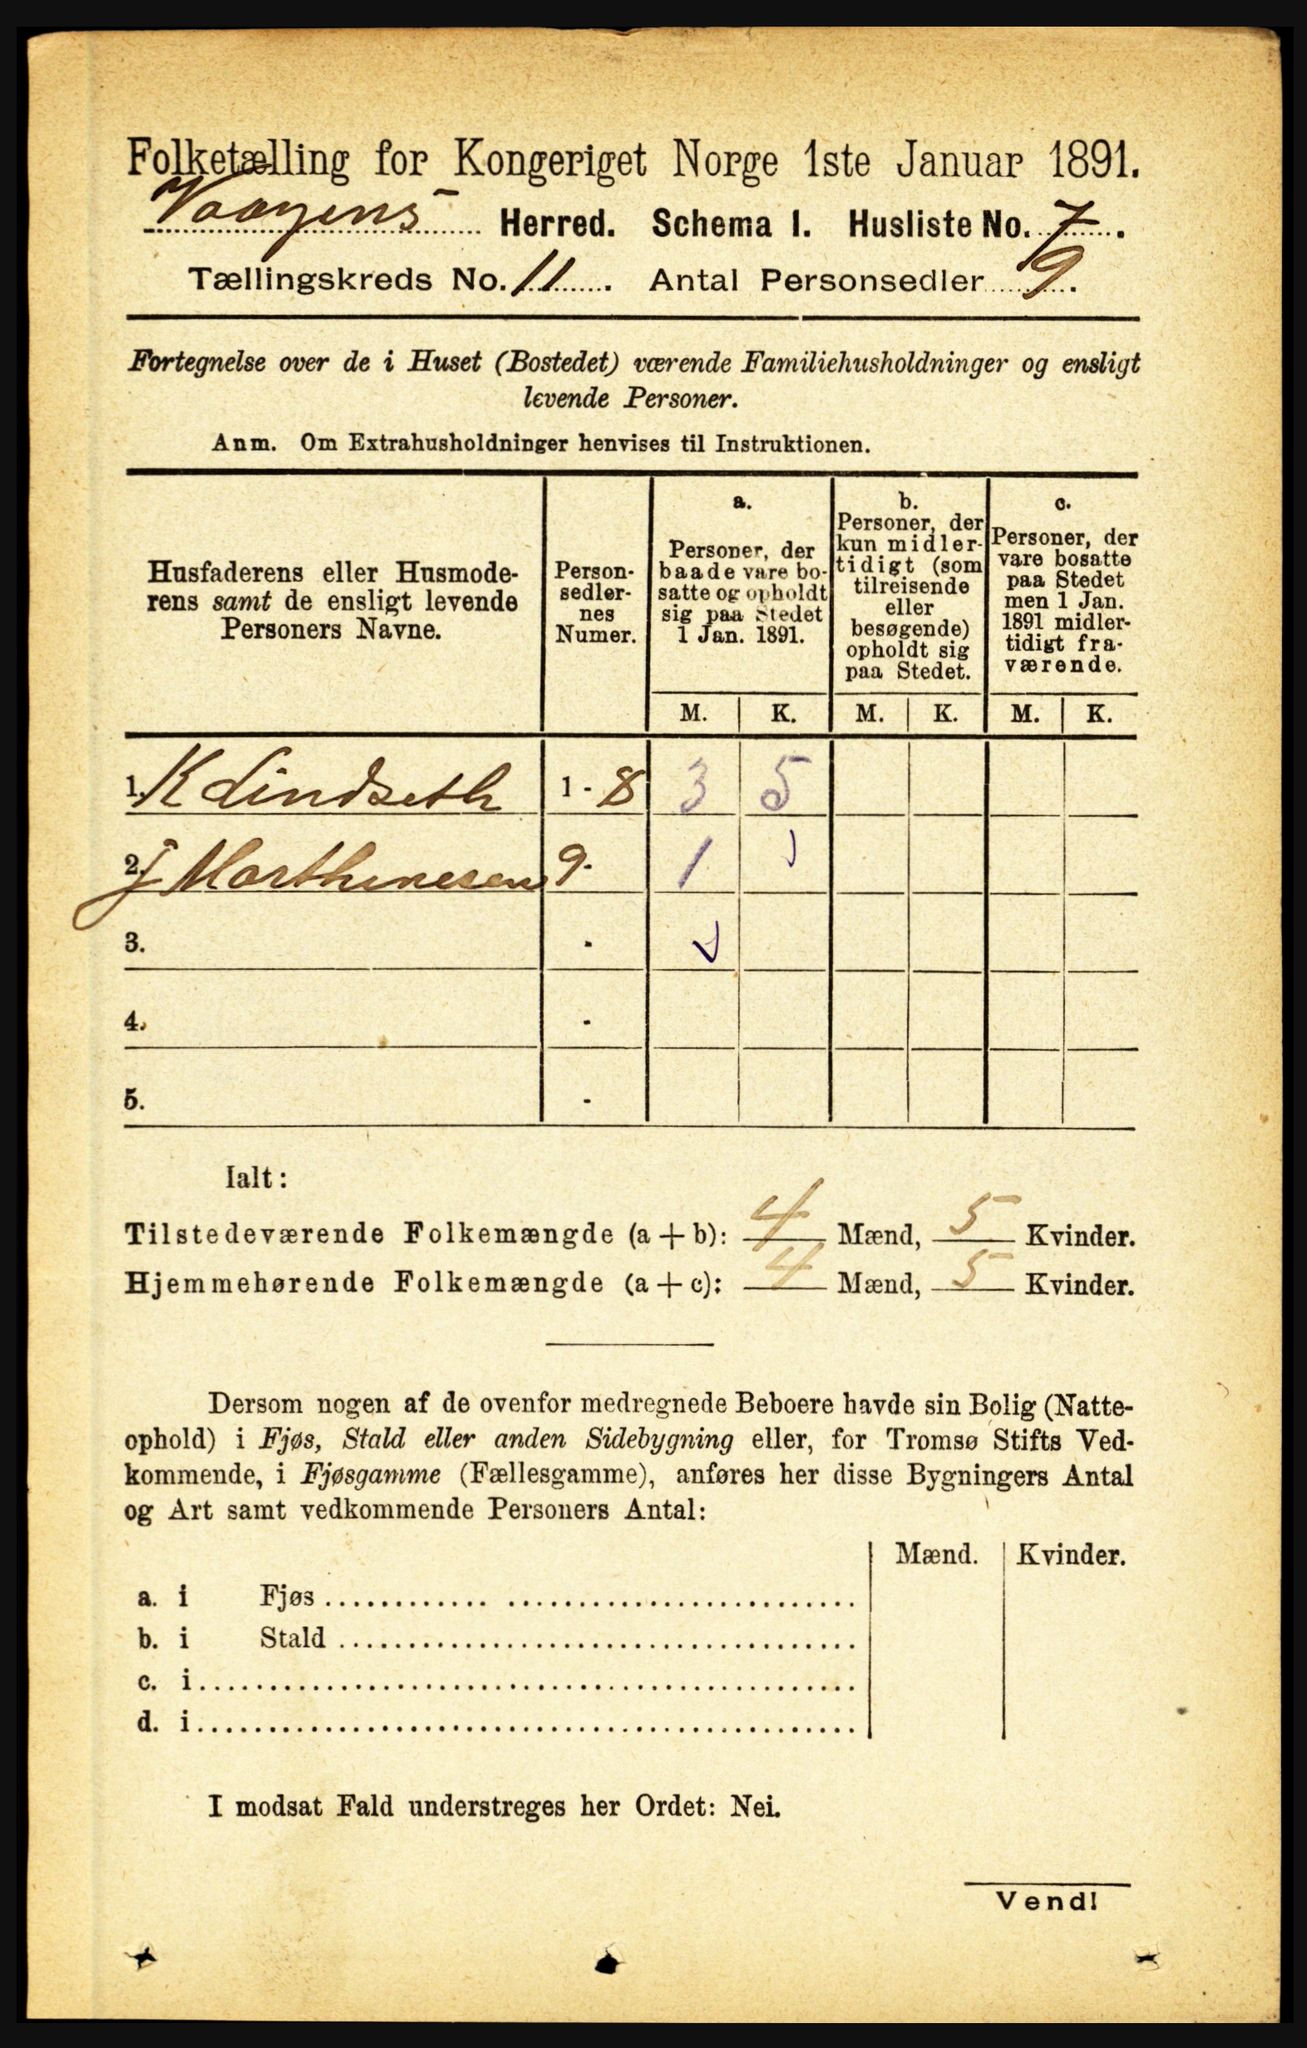 Folketælling for Kongeriget Norge 1ste Januar 1891.
Vaagens Herred. Schema I. Husliste No. 7.
Tællingskreds No. 11. Antal Personsedler 9.
Fortegnelse over de i Huset (Bostedet) værende Familiehusholdninger og ensligt
levende Personer.
Anm. Om Extrahusholdninger henvises til Instruktionen.
Husfaderens eller Husmode-
rens samt de ensligt levende
Personers Navne.
Person-
sedler-
nes
Numer.
a.
Personer, der
baade vare bo-
satte og opholdt
sig paa Stedet
1 Jan. 1891.
b.
Personer, der
kun midler-
tidigt (som
tilreisende
eller
besøgende)
opholdt sig
paa Stedet.
c.
Personer, der
vare bosatte
paa Stedet
men 1 Jan.
1891 midler-
tidigt fra-
værende.
M. K. M. K. M. K.
1. K Lindseth 1 - 8 3 5
2. J Marthinesen 9 - 1
3. -
4. -
5. -
Ialt:
Tilstedeværende Folkemængde (a + b): 4 Mænd, 5 Kvinder.
Hjemmehørende Folkemængde (a + c): 4 Mænd, 5 Kvinder.
Dersom nogen af de ovenfor medregnede Beboere havde sin Bolig (Natte-
ophold) i Fjøs, Stald eller anden Sidebygning eller, for Tromsø Stifts Ved-
kommende, i Fjøsgamme (Fællesgamme), anføres her disse Bygningers Antal
og Art samt vedkommende Personers Antal:
Mænd. Kvinder.
a. i Fjøs
b. i Stald
c. i
d. i
I modsat Fald understreges her Ordet: Nei.
Vend!